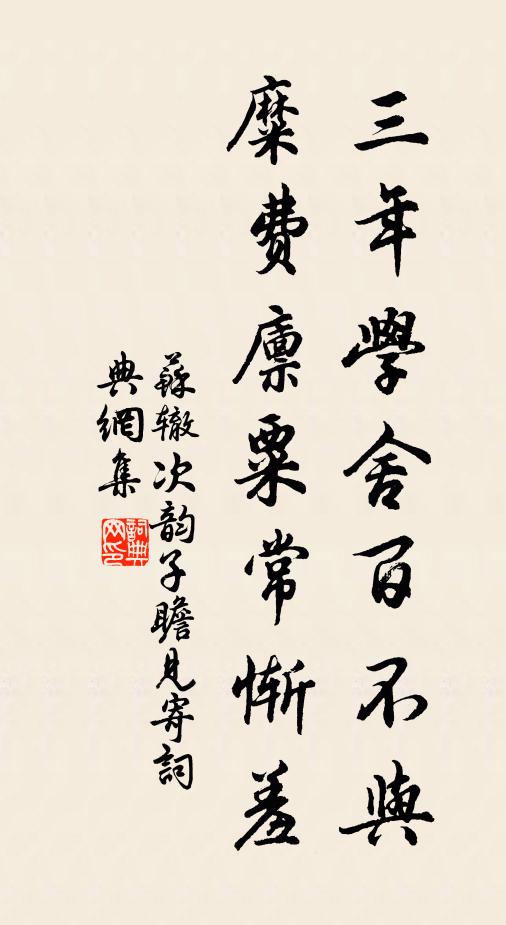 三年學舍百不與
糜費廩粟常慚羞
蘇轍次韵子瞻見寄詞
典網集
詞典網印